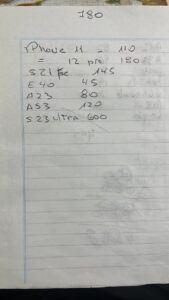 180
iPhone 11 - 110
= 12 pro 180
S21 fe 145
E40 45
A23 80
A53 120
S23 ultra 600